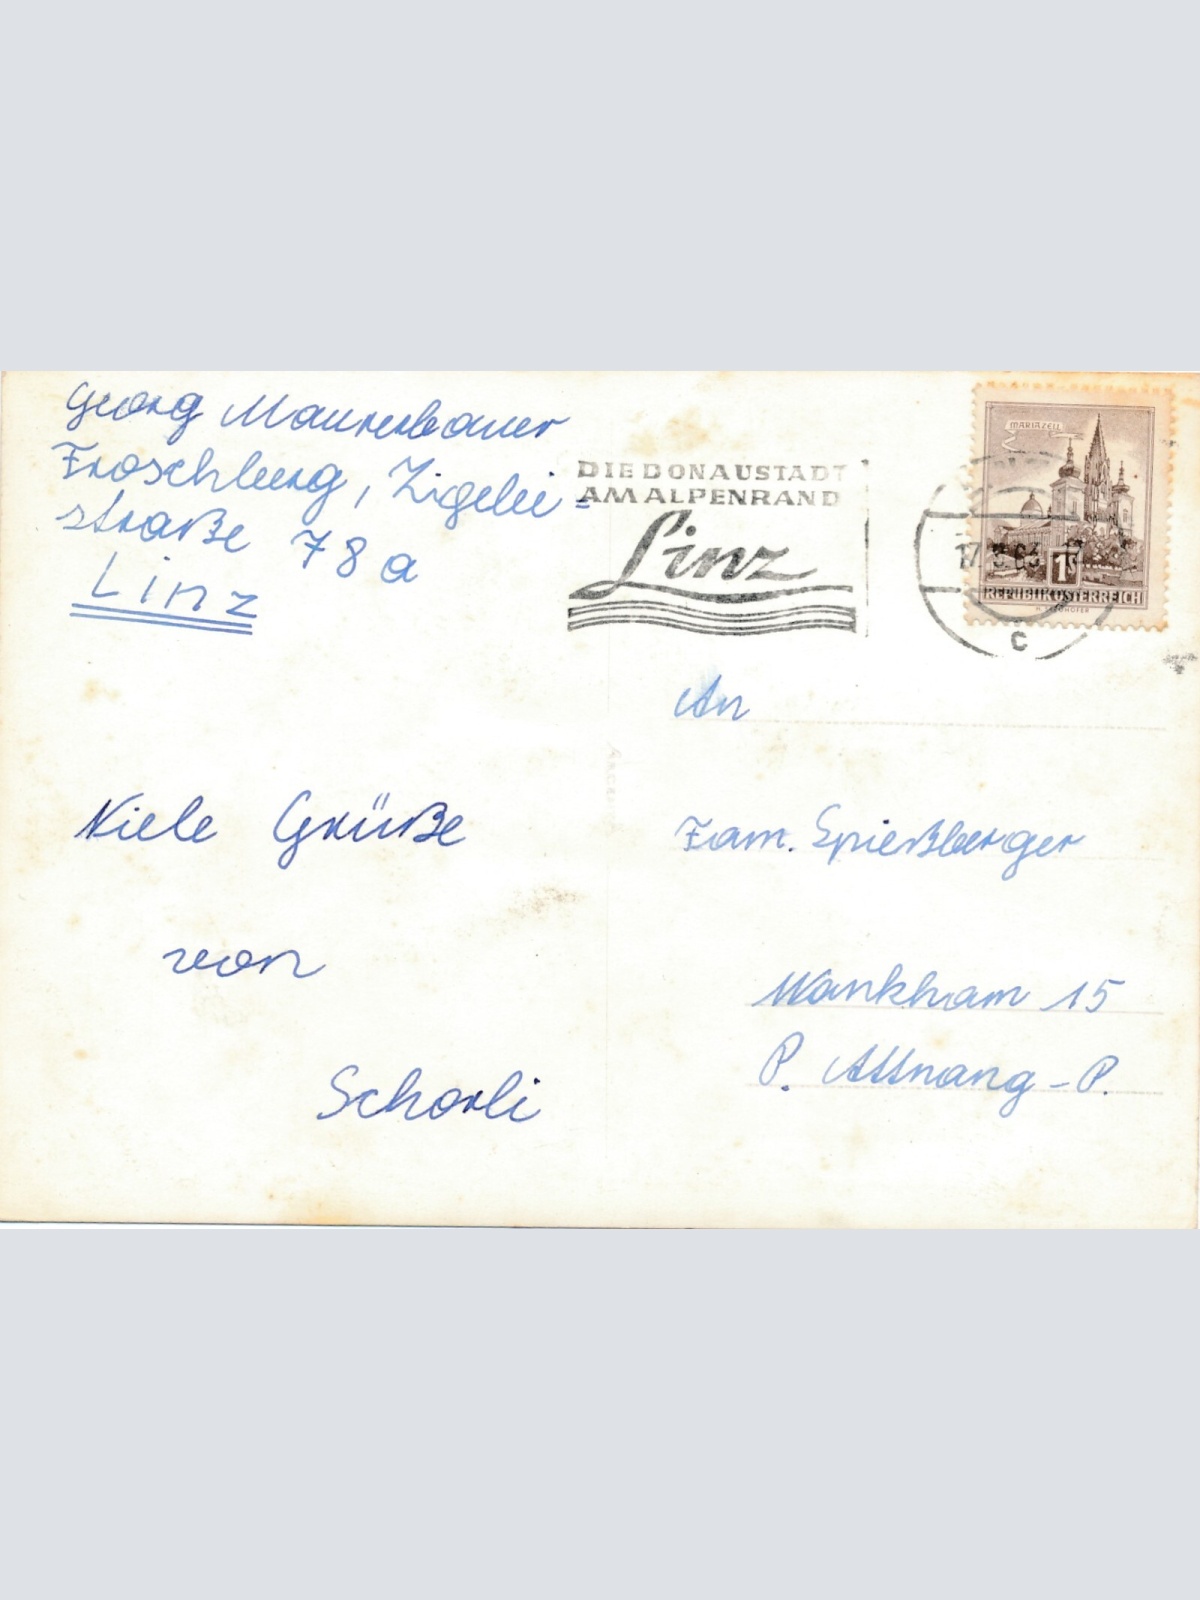 Georg Maurerbauer
Froschberg, Zigelei-
straße 78a
Linz
DIE DONAUSTADT
AM ALPENRAND
Linz
MARIAZELL
1S
REPUBLIK ÖSTERREICH
C
An
Fam. Spießberger
Wankham 15
P. Attnang-P.
Viele Grüße
von
Schorli